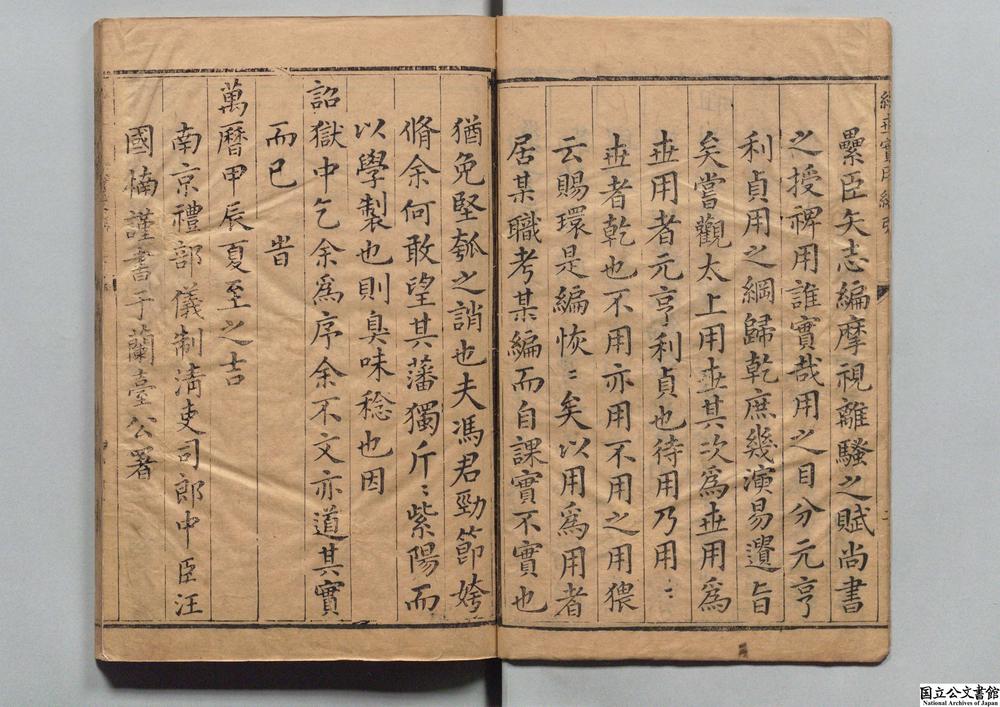 纍臣矢志編摩視離騷之賦尚書
之授裨用誰實哉用之目分元亨
利貞用之綱歸乾庶幾演易遺旨
矣嘗觀太上用世其次爲世用爲
世用者元亨利貞也待用乃用〻
世者乾也不用亦用不用之用猥
云賜環是編恢〻矣以用爲用者
居某職考某編而自課實不實也
猶免堅瓠之誚也夫馮君勁節姱
脩余何敢望其藩獨斤〻紫陽而
以學製也則臭味稔也因
詔獄中乞余爲序余不文亦道其實
而已 旹
萬曆甲辰夏至之吉
南京禮部儀制清吏司郎中臣汪
國楠謹書于蘭臺公署
国立公文書館
National Archives of Japan